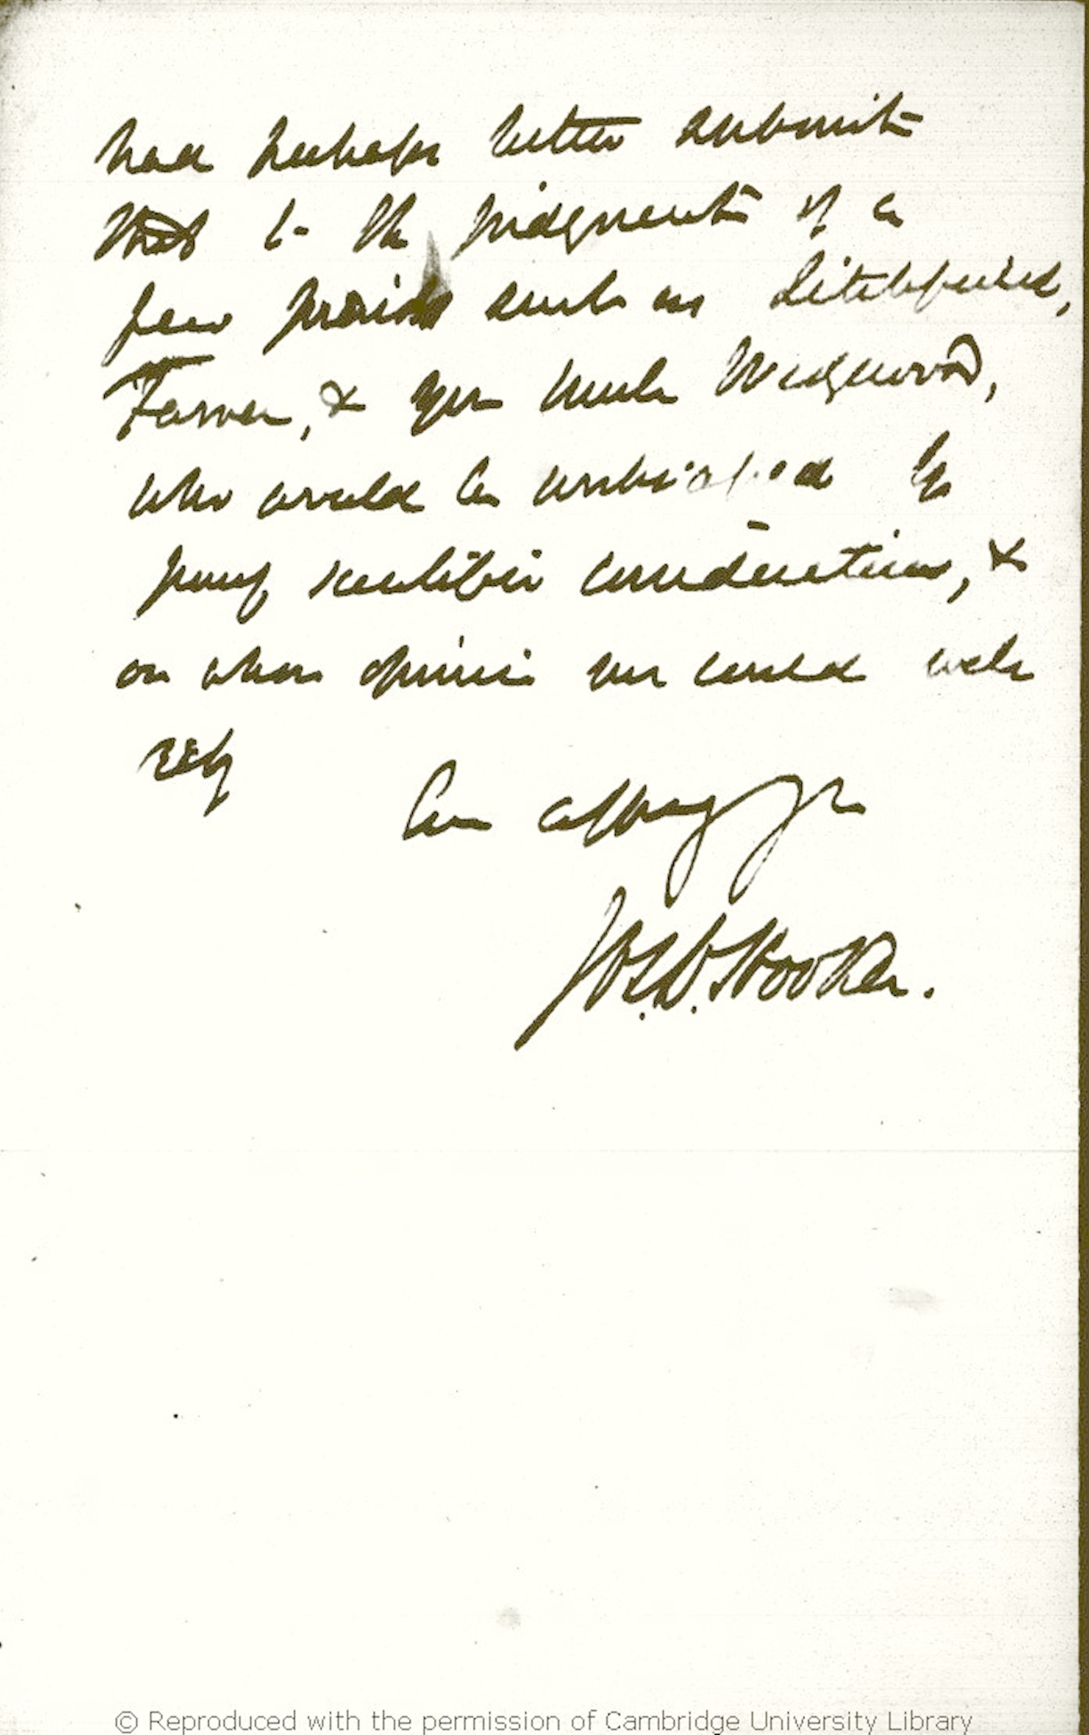 had perhaps better submit
that to the judgment of a
few friends such as Litchfield,
Farrer, & your Uncle Wedgwood,
who would be unbiassed by
purely scientific considerations, &
on whose opinion we could well
rely
Ever affecy yr
Jos. D. Hooker.
© Reproduced with the permission of Cambridge University Library